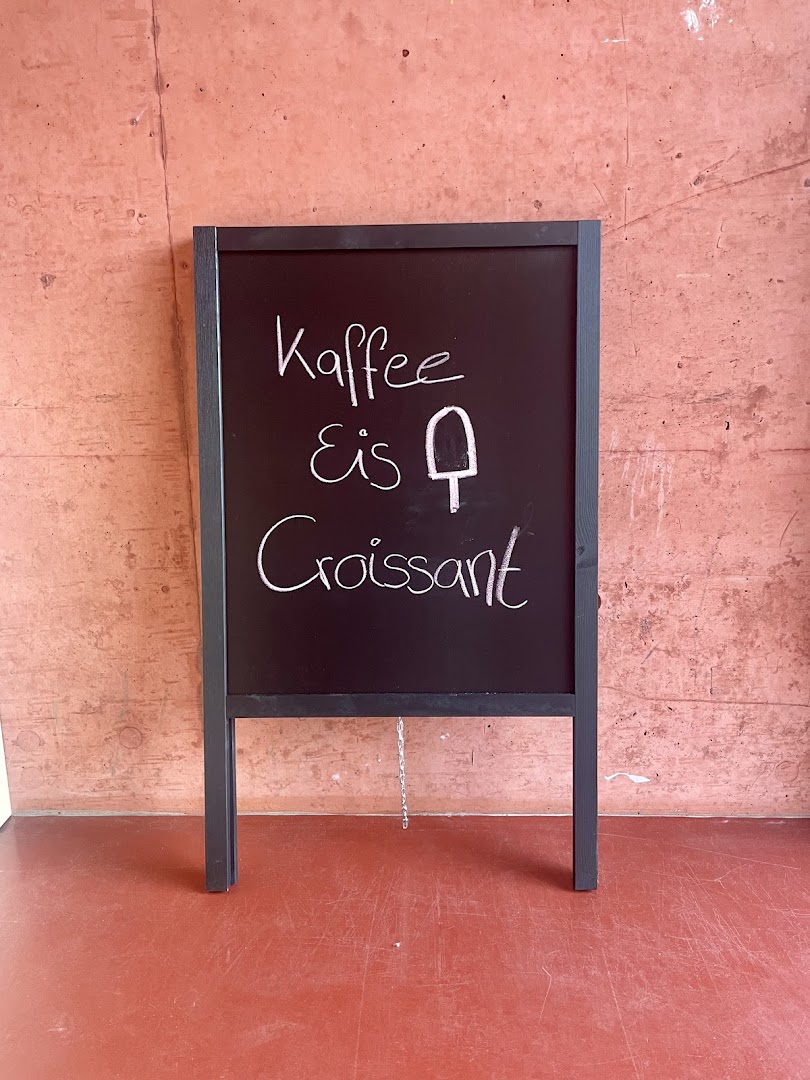 Kaffee
Eis
Croissant